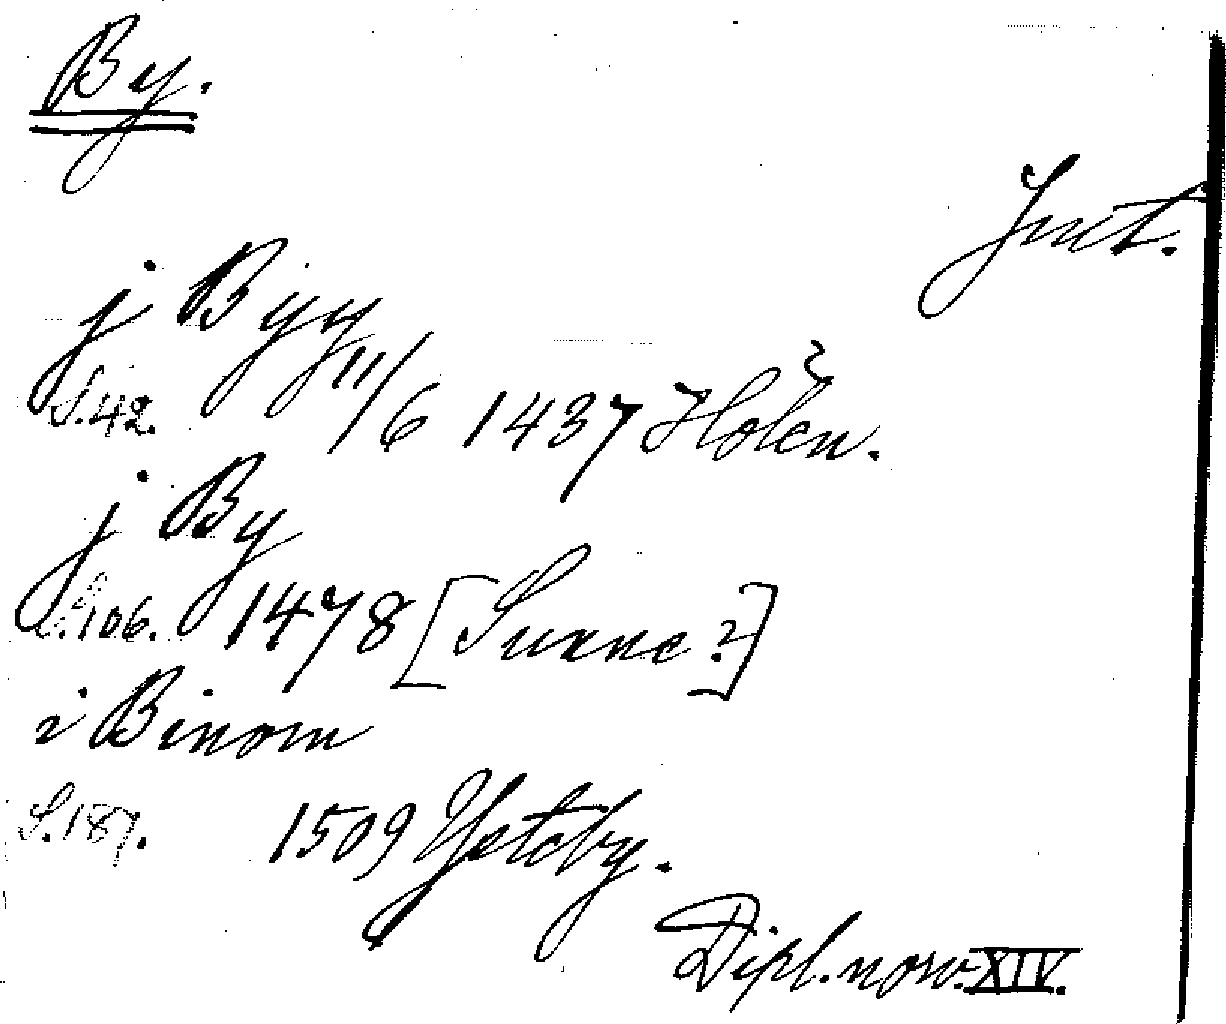 By.
Jmt.
j Byy
S.42. 11/6 1437 Holen.
j By
S.106. 1478 [Sunne?]
i Binom
S.187. 1509 Yeteby.
Dipl. norv. XIV.